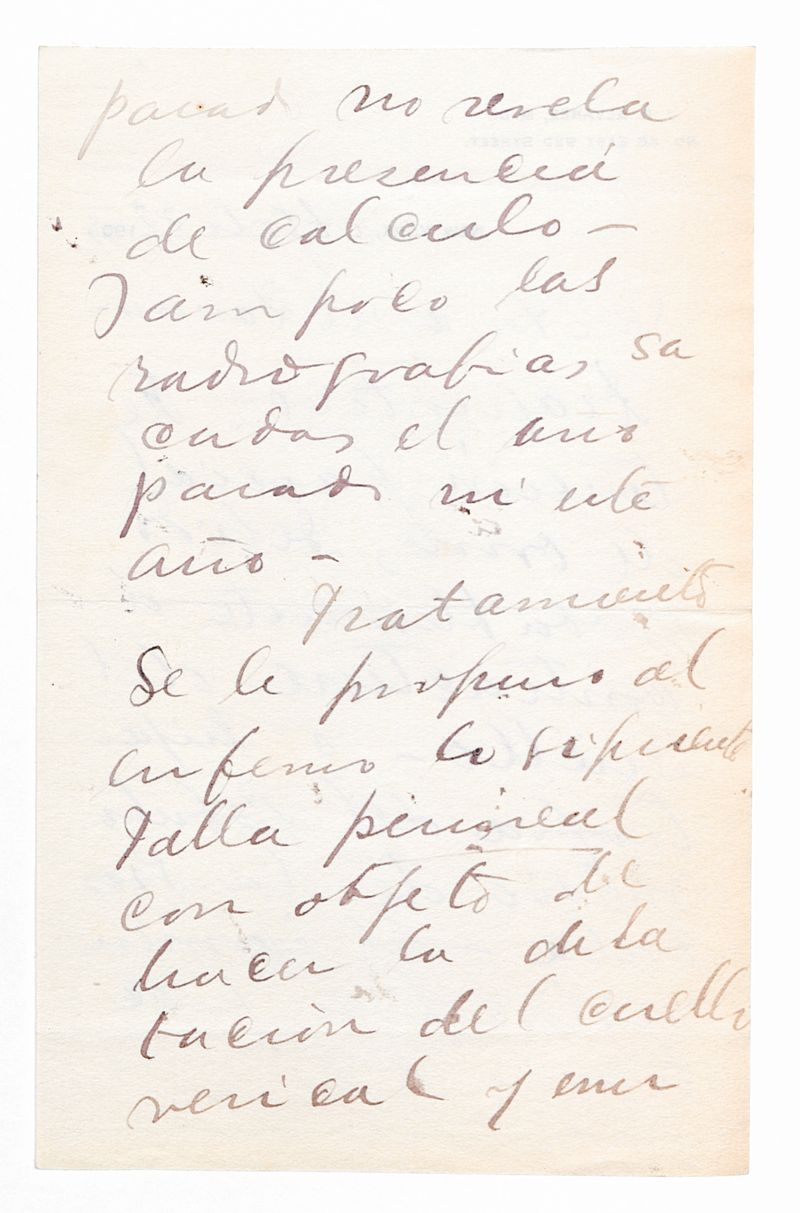 pasado no revela
la presencia
de calculo —
Tampoco las
radiografias sa
cadas el ano
pasado ni este
año —
Tratamiento
Se le propuso al
enfermo lo siguiente
Talla perineal
con objeto de
hacer la dila
tación del cuello
vesical y